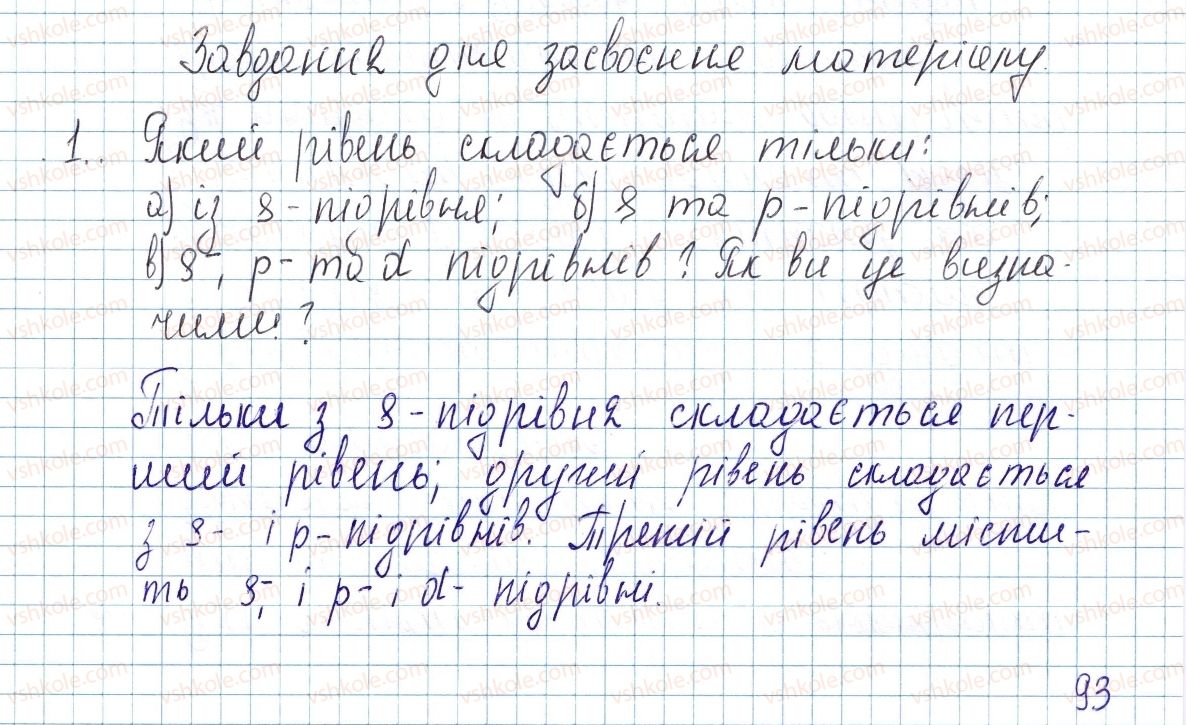 Завдання для засвоєння матеріалу.
1. Який рівень складається тільки:
а) із s-підрівня; б) s та p-підрівнів;
в) s-, p- та d підрівнів? Як ви це визна-
чили?
Тільки з s-підрівня складається пер-
ший рівень; другий рівень складається
з s- і p-підрівнів. Третій рівень місти-
ть s-, і p- і d- підрівні.
93